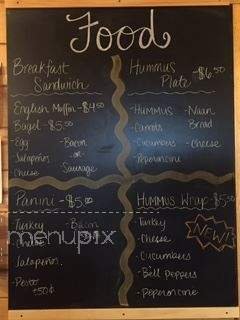 Food
Breakfast
Sandwich
English Muffin - $4.50
Bagel - $5.50
-Egg
-Bacon
or
Sausage
Jalapeños
Cheese
Hummus
Plate - $6.50
-Hummus
-Naan
Bread
-Carrots
-Cucumbers
-Cheese
-Peperoncini
Panini - $5.00
Turkey
-Bacon
Jalapeño
-Pesto
+50¢
Hummus Wrap - $5.50
-Turkey
-Cheese
-Cucumbers
-Bell Peppers
-Peperoncini
NEW!
menupix